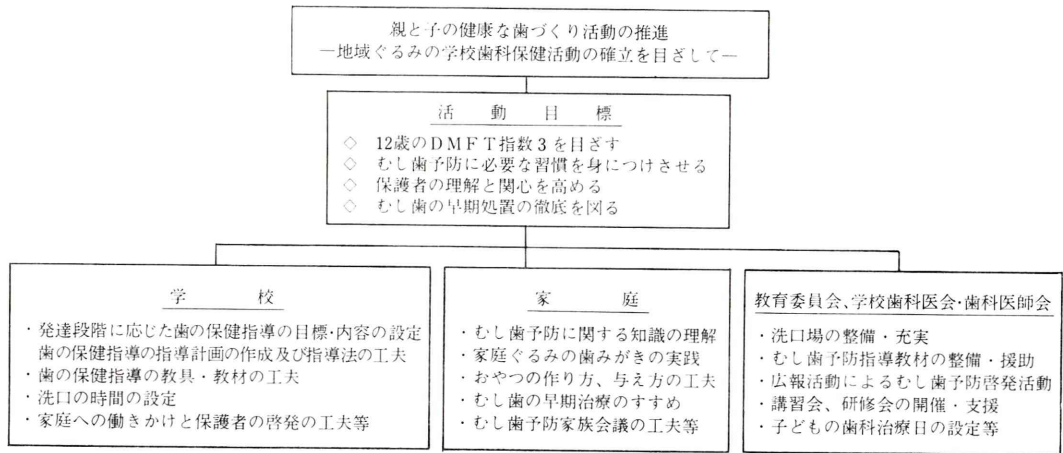 親と子の健康な歯づくり活動の推進
―地域ぐるみの学校歯科保健活動の確立を目ざして―
活動目標
◇ 12歳のDMFT指数3を目ざす
◇ むし歯予防に必要な習慣を身につけさせる
◇ 保護者の理解と関心を高める
◇ むし歯の早期処置の徹底を図る
学校
・発達段階に応じた歯の保健指導の目標・内容の設定
歯の保健指導の指導計画の作成及び指導法の工夫
・歯の保健指導の教具・教材の工夫
・洗口の時間の設定
・家庭への働きかけと保護者の啓発の工夫等
家庭
・むし歯予防に関する知識の理解
・家庭ぐるみの歯みがきの実践
・おやつの作り方、与え方の工夫
・むし歯の早期治療のすすめ
・むし歯予防家族会議の工夫等
教育委員会、学校歯科医会・歯科医師会
・洗口場の整備・充実
・むし歯予防指導教材の整備・援助
・広報活動によるむし歯予防啓発活動
・講習会、研修会の開催・支援
・子どもの歯科治療日の設定等